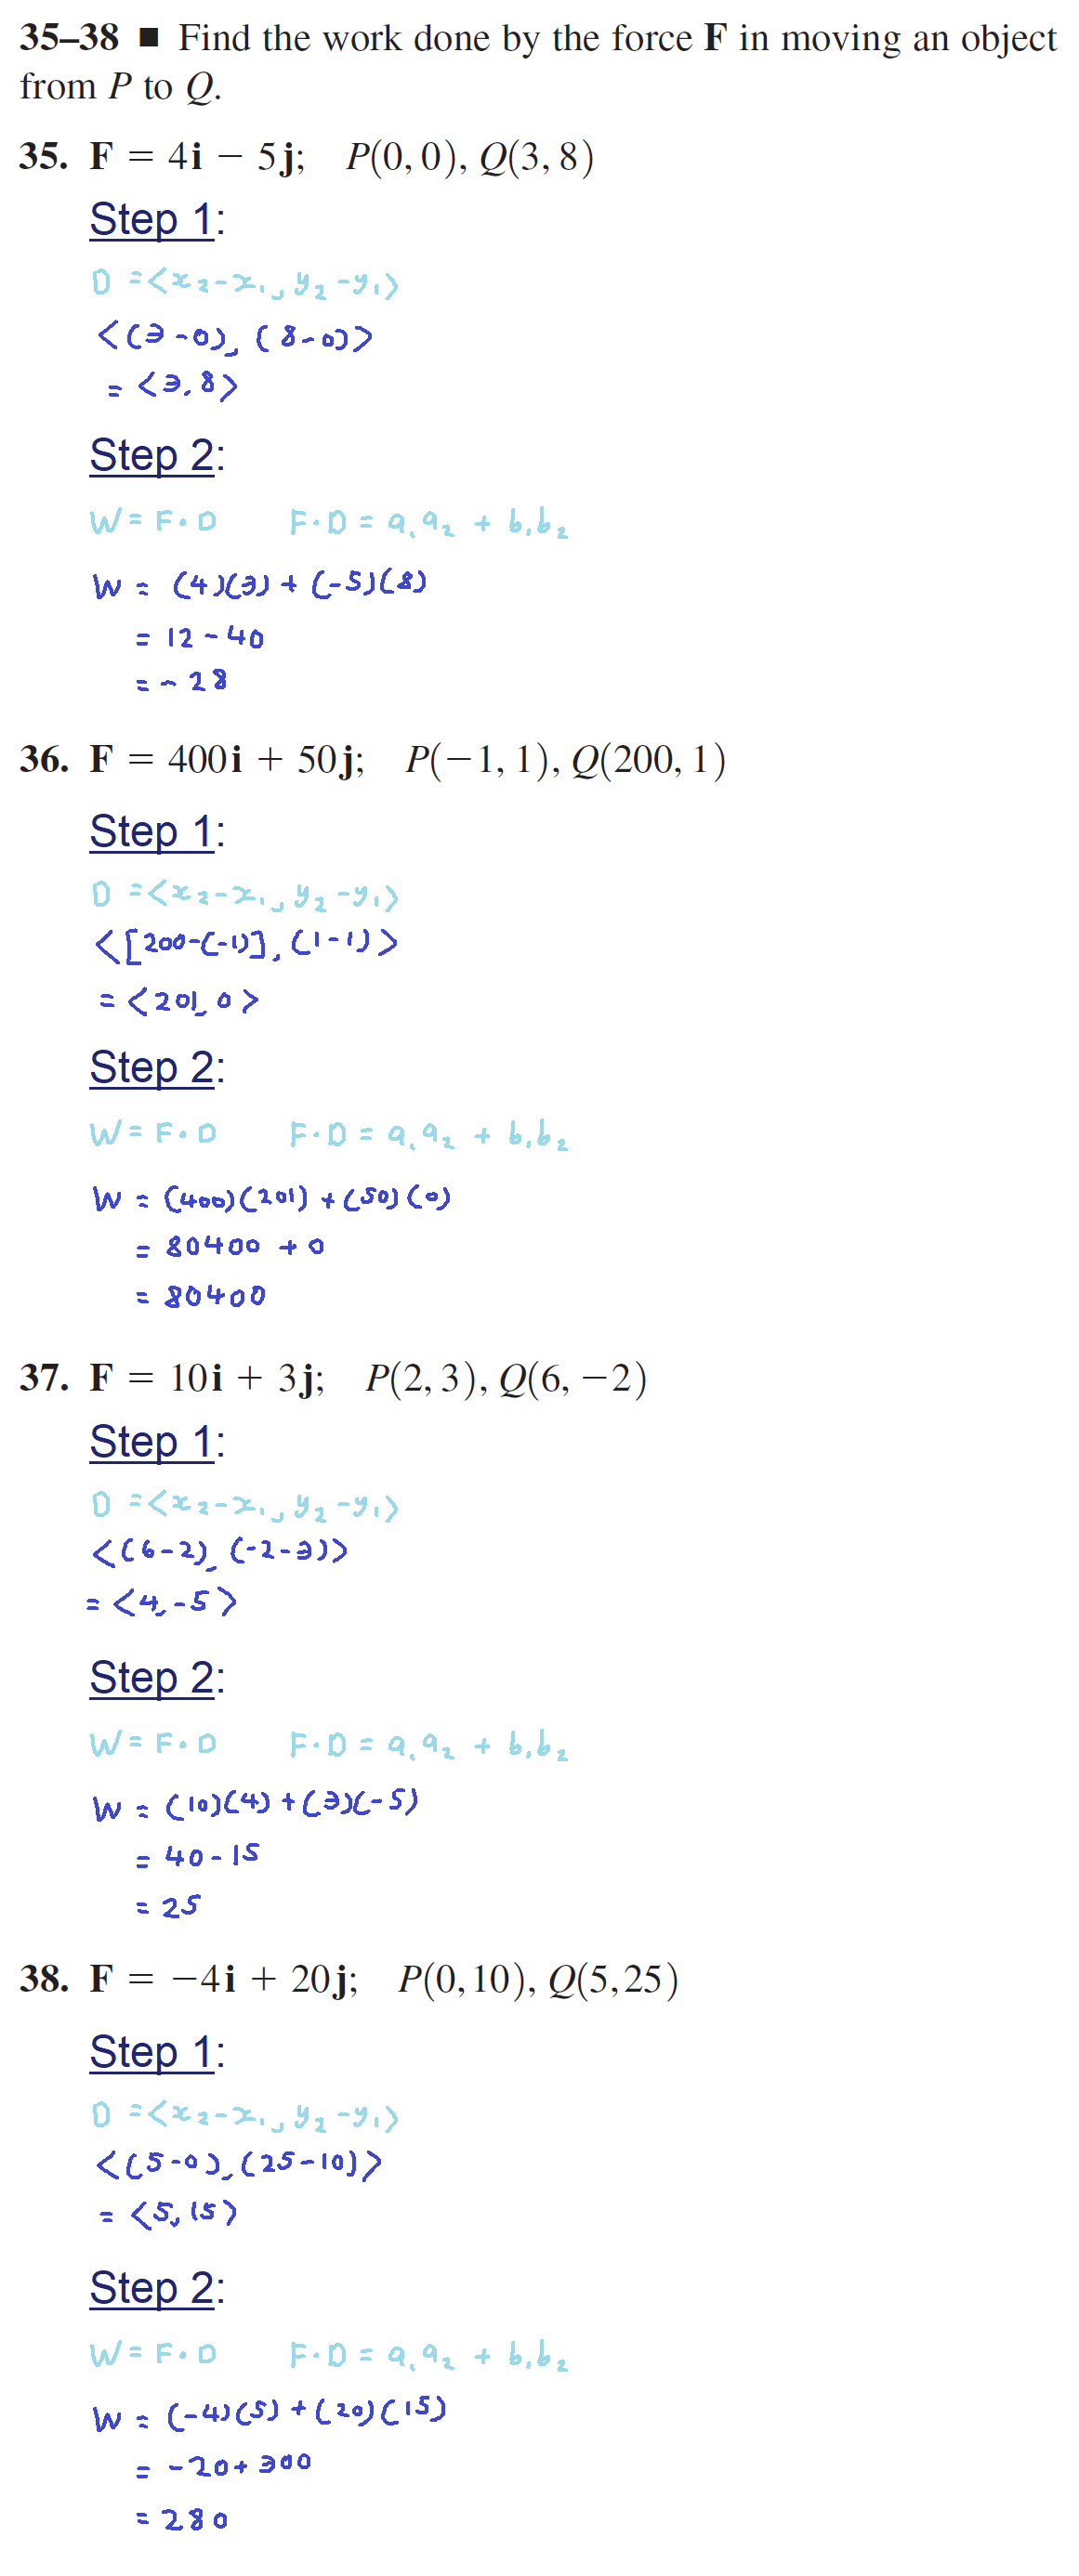 35–38 ■ Find the work done by the force F in moving an object
from P to Q.
35. F = 4i − 5j; P(0, 0), Q(3, 8)
Step 1:
D = <x₂-x₁, y₂-y₁>
<(3-0), (8-0)>
= <3, 8>
Step 2:
W = F·D F·D = a₁a₂ + b₁b₂
W = (4)(3) + (-5)(8)
= 12 - 40
= - 28
36. F = 400i + 50j; P(−1, 1), Q(200, 1)
Step 1:
D = <x₂-x₁, y₂-y₁>
<[200-(-1)], (1-1)>
= <201, 0>
Step 2:
W = F·D F·D = a₁a₂ + b₁b₂
W = (400)(201) + (50)(0)
= 80400 + 0
= 80400
37. F = 10i + 3j; P(2, 3), Q(6, −2)
Step 1:
D = <x₂-x₁, y₂-y₁>
<(6-2), (-2-3)>
= <4, -5>
Step 2:
W = F·D F·D = a₁a₂ + b₁b₂
W = (10)(4) + (3)(-5)
= 40 - 15
= 25
38. F = −4i + 20j; P(0, 10), Q(5, 25)
Step 1:
D = <x₂-x₁, y₂-y₁>
<(5-0), (25-10)>
= <5, 15>
Step 2:
W = F·D F·D = a₁a₂ + b₁b₂
W = (-4)(5) + (20)(15)
= -20 + 300
= 280